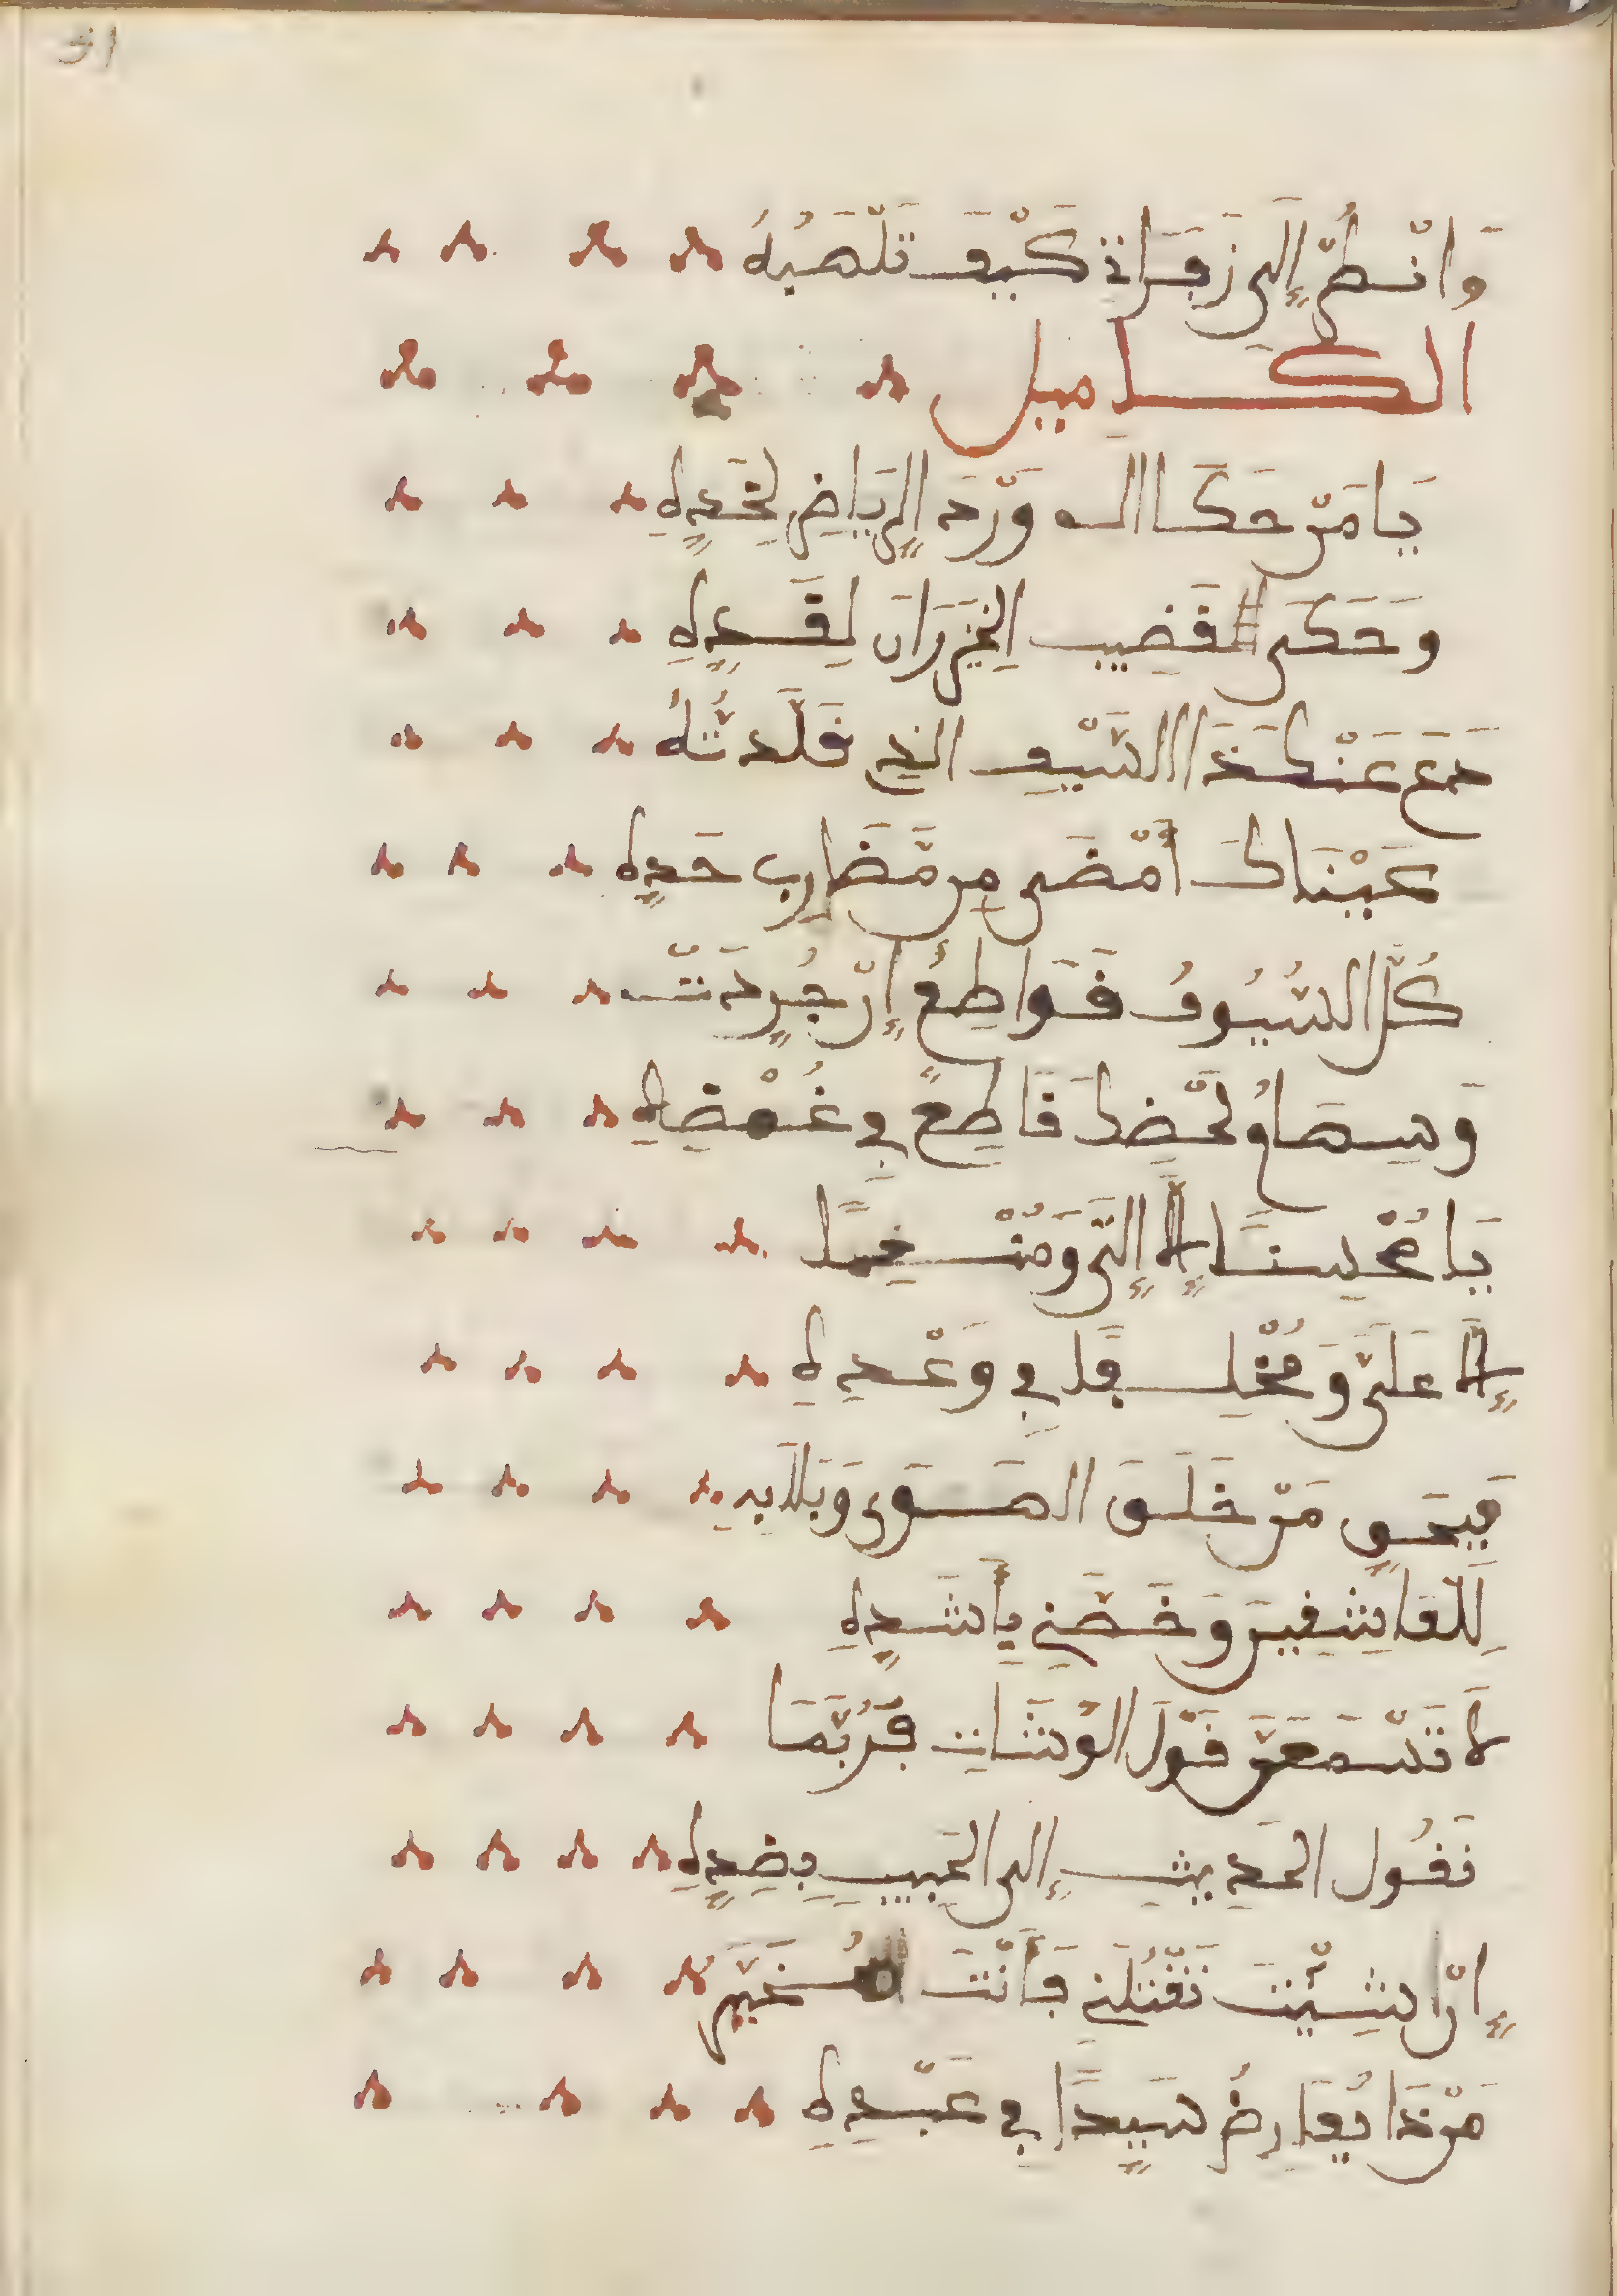 وَانْظُرْ إِلَى زَفَرَاةٍ كَيْفَ تَلْهَبُهُ
الكاميل
يَا مَنْ حَكَا الـ وَرْدَ الرِّيَاضِ لِخَدِّهِ
وَحَكَى لقَضِيب الخَيْزَرَان لِقَدِّهِ
دَعْ عَنْكَ ذَا السَّيْف الذي قَلَّدْتُهُ
عَيْنَاكَ أَمْضَى مِن مَّضَارِب حَدِّهِ
كُلُّ السُّيُوفُ قَوَاطِعُ إِنْ جُرِّدَتْ
وَسِهَامُ لَحْضِكَ قَاطِعٌ فِي غُمْضِهِ
يَا مُحْسِنًا إِلاَّ إِلَيَّ وَمُنْعِمًا
إِلاَّ عَلَيَّ وَمُخْلِفًا فِي وَعْدِهِ
فَبِحَقِّ مَنْ خَلَقَ الهَوَى وَبَلاَنِي بِهِ
لِلعَاشِقِينَ وَخَصَّنِي بِأَشَدِّهِ
لاَ تَسْمَعَنَّ قَوْلَ الوُشَاتِ فَرُبَّمَا
نَقُول الحَدِيث إِلى الحَبِيبِ بِضِدِّهِ
إِنْ شِئْتَ تَقْتُلْنِي فَأَنْتَ
مَنْ ذَا يُعَارِضُ سَيِّدًا فِي عَبْدِهِ